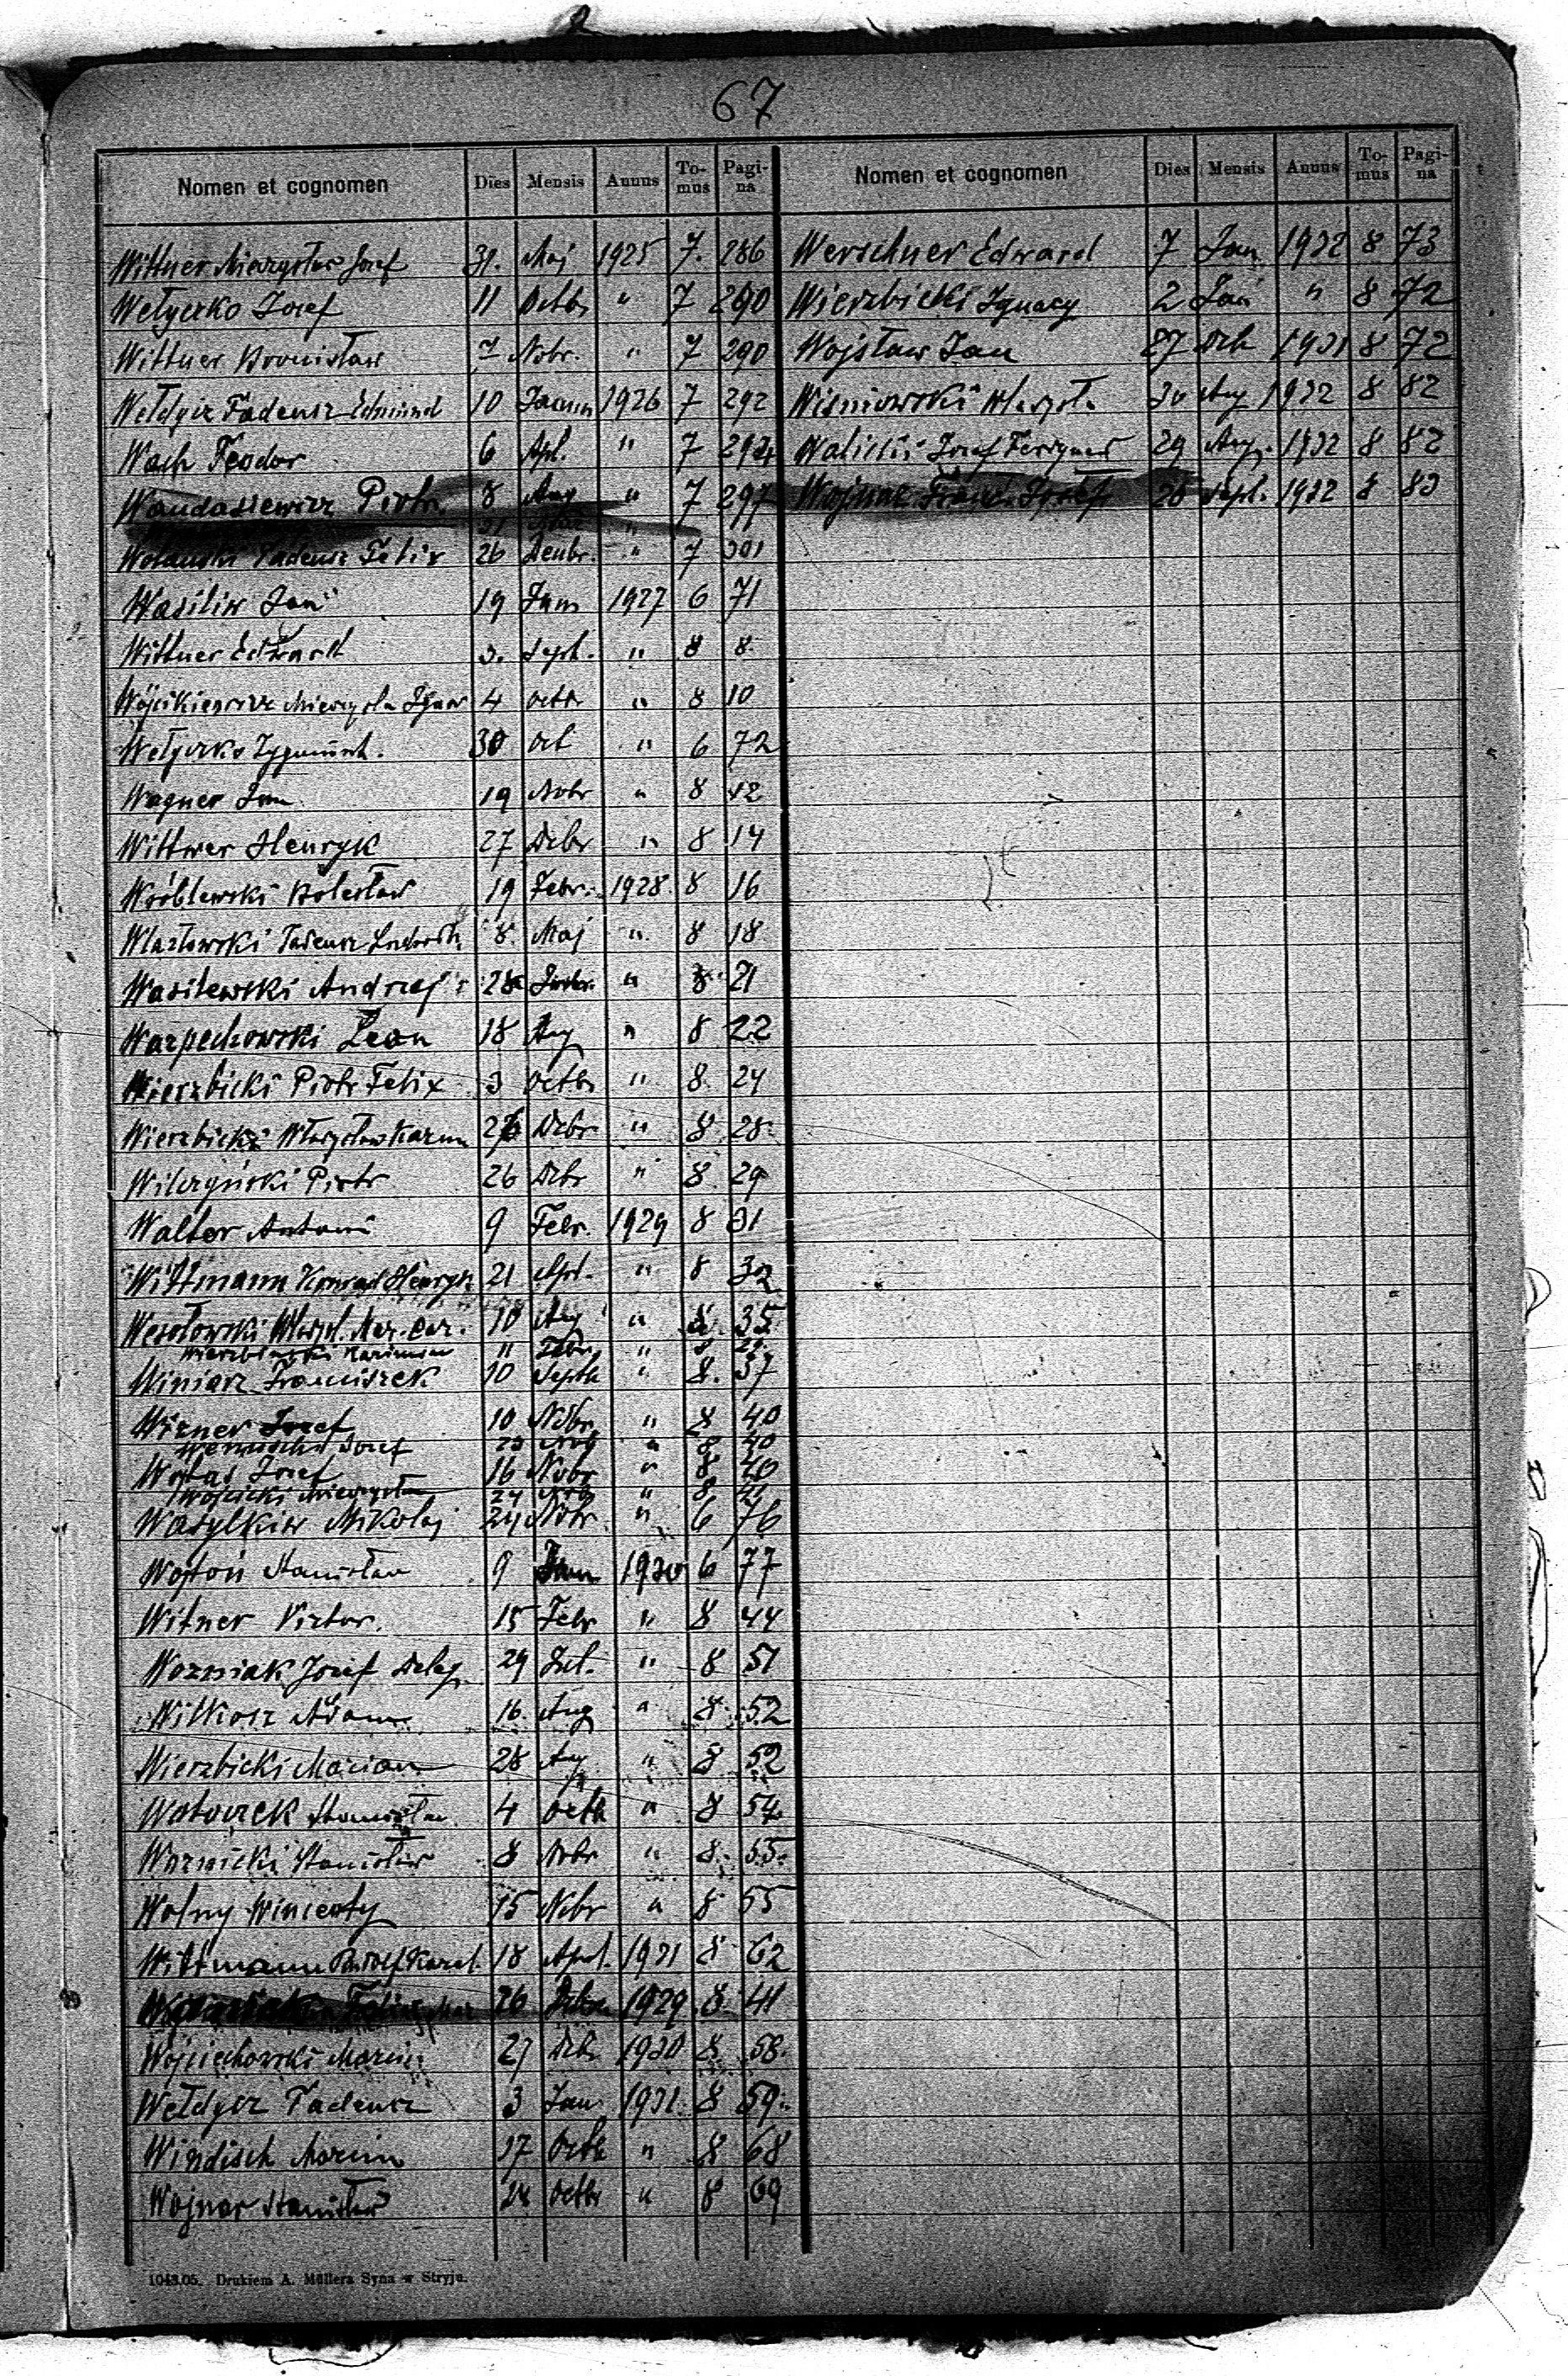 67
Nomen et cognomen Dies Mensis Annus To-mus Pagi-na
Wittner Mieczysław Josef 31. Maj 1925 7. 286
Wełyczko Josef 11 Octbr " 7 290
Wittner Bronisław 7 Nobr. " 7 290
Wełdycz Tadeusz Edmund 10 Januar 1926 7 292
Wach Teodor 6 Apl. " 7 294
Wandasiewicz Piotr 8 Aug " 7 297
21 Mar "
Wolański Tadeusz Felix 26 Decbr. " 7 301
Wasiliw Jan 19 1927 6 71
Wittner Edward 3. Sept. " 8 8
Wójcikiewicz Mieczysła Ignac 4 octbr " 8 10
Wełyczko Zygmunt. 30 oct " 6 72
Wagner Jan 19 Nobr " 8 12
Wittwer Henryk 27 Dcbr " 8 14
Wróblewski Bolesław 19 Febr. 1928 8 16
Tadeusz 8. Maj " 8 18
Wasilewski Andrzej " 8 21
Warpechowski Leon 18 Aug " 8 22
Wierzbicki Piotr Felix 3 octbr " 8. 24
Wierzbicki Władysław Kazim Dcbr " 8 28
Wilczyński Piotr 26 Dcbr " 8. 29
Walter Antoni 9 Febr. 1929 8 31
Wittmann Konrad Henryk 21 Apl. " 8 32
Wesołowski Władysł. Mar. 10 Aug " 8. 35
Kazimierz 11 Febr. " 8
Winiarz Franciszek 10 Septb " 8. 37
Wizner Josef 10 Nobr " 8 40
Josef 23 " 8 40
Wojtas Josef 16 Nobr " 8 40
Wojcicki Mieczysław 24 " 8 41
Wasylkiw Mikolaj 24 Nobr " 6 76
Wojtoń Stanisław 9 Jan 1930 6 77
Witner Victor. 15 Febr " 8 44
Wozniak Josef 29 Jul. " 8 51
Wilkosz Adam 16. Aug " 8 52
Wierzbicki Marian 28 Aug " 8 52
Watoczek Stanisław 4 octb " 8 54
Warnicki Stanisław 8 Nobr " 8. 55.
Wolny Wincenty 15 Nobr " 8 55
Wittmann Rudolf Karol. 18 Aprl. 1931 8 62
26 Dcbr 1929 8. 41
Wojciechowski Marcin 27 Dcbr 1930 8 58.
Wełdycz Tadeusz 3 Jan 1931 8 59.
Windisch Marcin 17 Octb " 8 68
Wojnar Stanisław 24 octbr " 8 69
1043.05. Drukiem A. Müllera Syna w Stryju.
Nomen et cognomen Dies Mensis Annus To-mus Pagi-na
Werschner Edward 7 Jan 1932 8 73
Wierzbicki Ignacy 2 Jan " 8 72
Wojsław Jan 27 Dcb 1931 8 72
Wisniowski Władysła 30 Aug 1932 8 82
Josef 29 Aug. 1932 8 82
Wojnar Josef 28 Sept. 1932 8 83